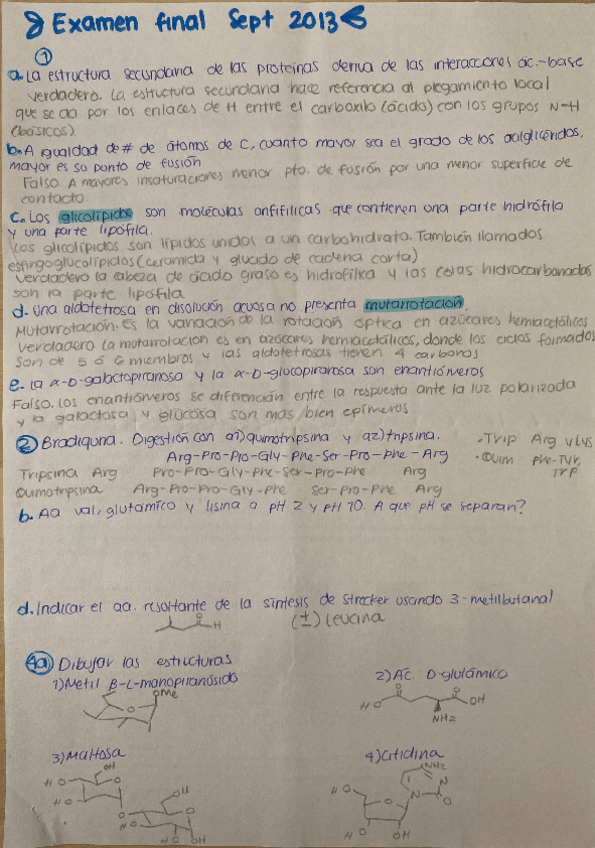 Examen final Sept 2013
①
a. La estructura secundaria de las proteínas deriva de las interacciones ac.-base
Verdadero. La estructura secundaria hace referencia al plegamiento local
que se da por los enlaces de H entre el carboxilo (ácido) con los grupos N-H
(básicos)
b. A igualdad de # de átomos de C, cuanto mayor sea el grado de los acilglicéridos,
mayor es su punto de fusión
Falso. A mayores insaturaciones menor pto. de fusión por una menor superficie de
contacto
c. Los glicolípidos son moléculas anfifílicas que contienen una parte hidrófila
y una parte lipofila.
Los glicolípidos son lípidos unidos a un carbohidrato. También llamados
esfingoglucolípidos (ceramida y glucido de cadena corta)
Verdadero la cabeza de ácido graso es hidrofílica y las colas hidrocarbonadas
son la parte lipofila
d. Una aldotetrosa en disolución acuosa no presenta mutarrotación.
Mutarrotación. Es la variación de la rotación óptica en azúcares hemiacetálicos
Verdadero la mutarrotacion es en azúcares hemiacetálicos, donde los ciclos formados
son de 5 ó 6 miembros y las aldotetrosas tienen 4 carbonos
e. la α-D-galactopiranosa y la α-D-glucopiranosa son enantiómeros
Falso. los enantiómeros se diferencian entre la respuesta ante la luz polarizada
y la galactosa y glucosa son mas bien epímeros
② Bradiquina. Digestión con a1) quimotripsina y a2) tripsina.
Arg-Pro-Pro-Gly-Phe-Ser-Pro-Phe-Arg
-Trip Arg y Lys
-Quim Phe-Tyr,
TrP
Tripsina Arg Pro-Pro-Gly-Phe-Ser-Pro-Phe Arg
Quimotripsina Arg-Pro-Pro-Gly-Phe Ser-Pro-Phe Arg
b. Aa val, glutámico y lisina a pH 2 y pH 10. A que pH se separan?
d. Indicar el aa. resultante de la síntesis de strecker usando 3-metilbutanal
O
H
(±) Leucina
4a) Dibujar las estructuras
1) Metil β-L-manopiranósido
OMe
O
2) Ác. D-glutámico
O O
HO OH
NH2
3) Maltosa
OH
HO O
HO
O OH
HO O
HO OH
4) Citidina
NH2
N
HO N O
O
HO OH